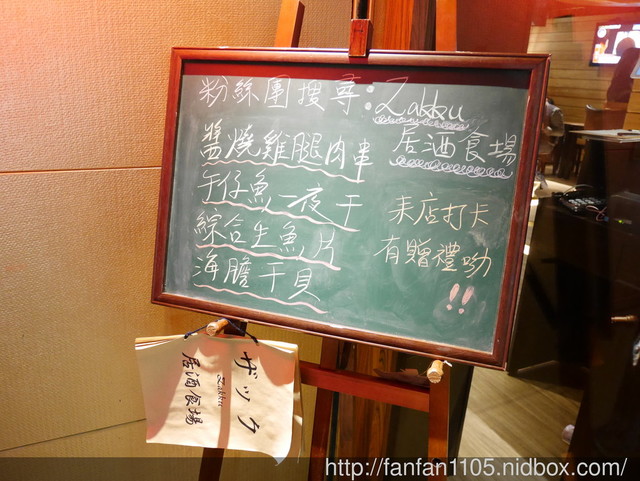 粉絲團搜尋：Zakku
居酒食場
醬燒雞腿肉串
午仔魚一夜干
綜合生魚片
海膽干貝
来店打卡
有贈禮呦
!!
ザック
Zakku
居酒食場
http://fanfan1105.nidbox.com/